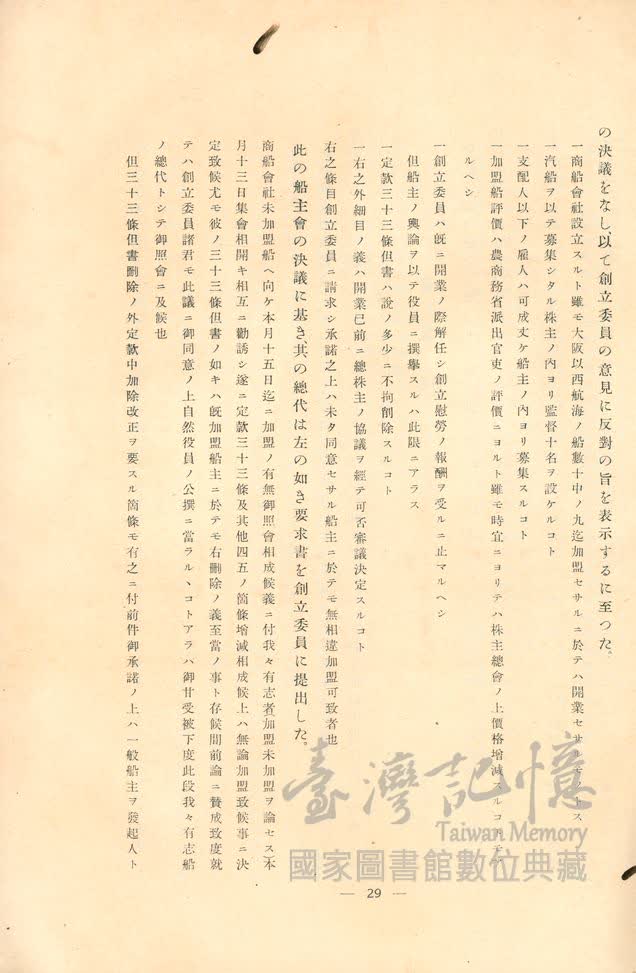 の決議をなし以て創立委員の意見に反對の旨を表示するに至つた。
一商船會社設立スルト雖モ大阪以西航海ノ船數十中ノ九迄加盟セサルニ於テハ開業セサルモノトス
一汽船ヲ以テ募集シタル株主ノ內ヨリ監督十名ヲ設ケルコト
一支配人以下ノ雇人ハ可成丈ケ船主ノ內ヨリ募集スルコト
一加盟船評價ハ農商務省派出官吏ノ評價ニヨルト雖モ時宜ニヨリテハ株主總會ノ上價格增減スルコトモア
ルヘシ
一創立委員ハ旣ニ開業ノ際解任シ創立慰勞ノ報酬ヲ受ルニ止マルヘシ
但船主ノ輿論ヲ以テ役員ニ撰擧スルハ此限ニアラス
一定款三十三條但書ハ說ノ多少ニ不拘削除スルコト
一右之外細目ノ義ハ開業已前ニ總株主ノ協議ヲ經テ可否審議決定スルコト
右之條目創立委員ニ請求シ承諾之上ハ未タ同意セサル船主ニ於テモ無相違加盟可致者也
此の船主會の決議に基き其の總代は左の如き要求書を創立委員に提出した。
商船會社未加盟船ヘ向ケ本月十五日迄ニ加盟ノ有無御照會相成候義ニ付我々有志者(加盟未加盟ヲ論セス)本
月十三日集會相開キ相互ニ勸誘シ遂ニ定款三十三條及其他四五ノ箇條增減相成候上ハ無論加盟致候事ニ決
定致候尤モ彼ノ三十三條但書ノ如キハ旣加盟船主ニ於テモ右刪除ノ義至當ノ事ト存候間前論ニ贊成致度就
テハ創立委員諸君モ此議ニ御同意ノ上自然役員ノ公撰ニ當ラルヽコトアラハ御甘受被下度此段我々有志船
ノ總代トシテ御照會ニ及候也
但三十三條但書刪除ノ外定款中加除改正ヲ要スル箇條モ有之ニ付前件御承諾ノ上ハ一般船主ヲ發起人ト
— 29 —
臺灣記憶
Taiwan Memory
國家圖書館數位典藏